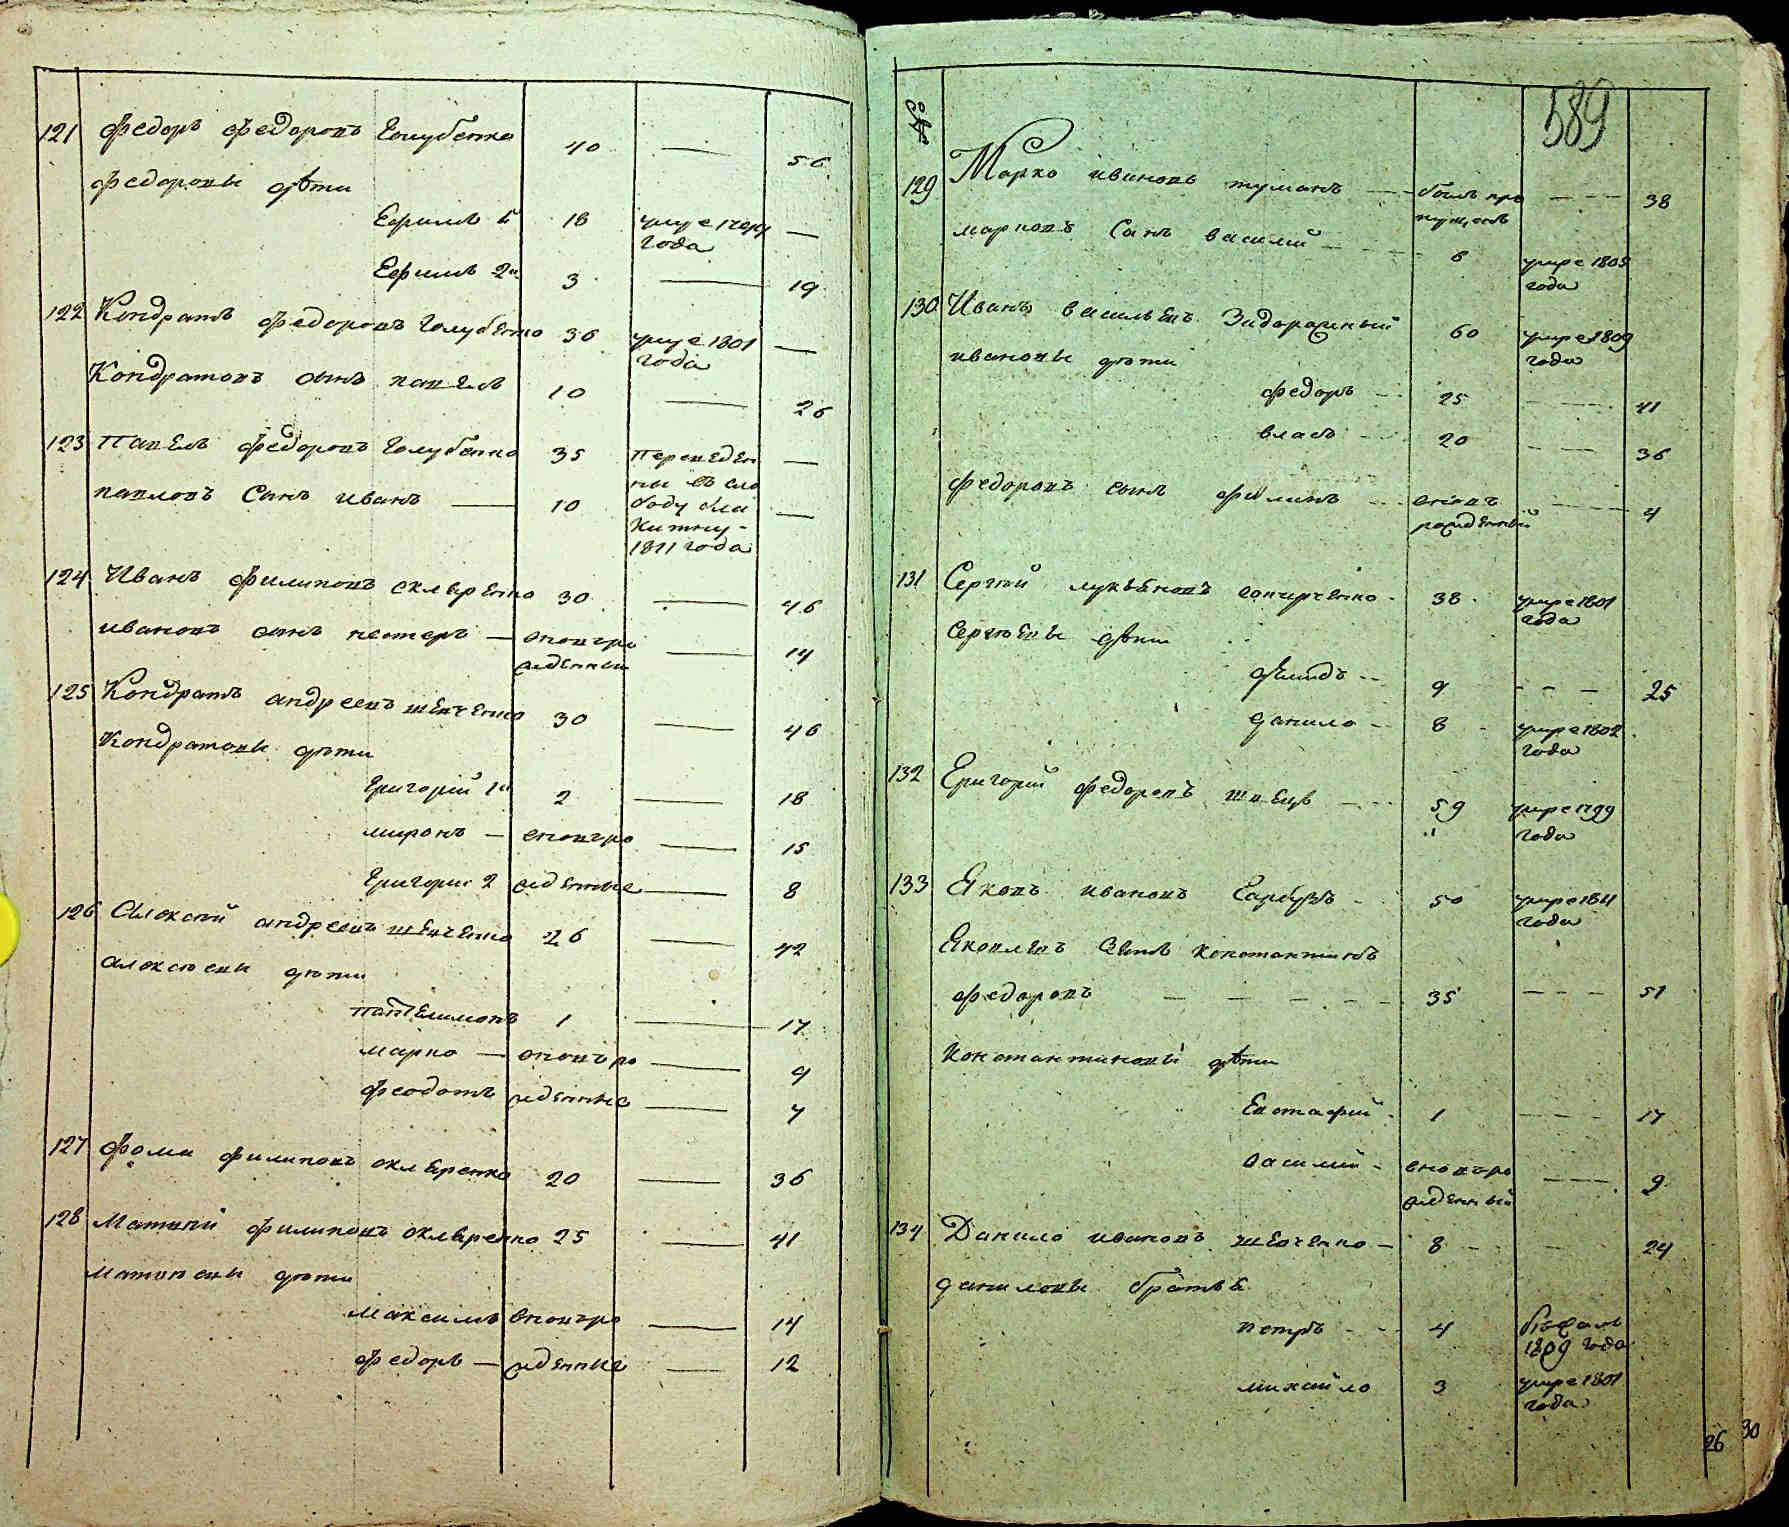 121 Федоръ Федоровъ Голубенко 40 — 56
Федоровы дѣти
Ефимъ 1й 18 умре года —
Ефимъ 2й 3 — 19
122 Кондратъ Федоровъ Голубенко 36 умре 1801 года —
Кондратовъ сынъ павелъ 10 — 26
123 Павелъ Федоровъ Голубенко 35 переведен —
павловъ Сынъ иванъ — 10 ны въ сло —
боду
1811 года
124 Иванъ Филиповъ скляренко 30 — 46
ивановъ сынъ нестеръ — вновъро — 14
жденный
125 Кондратъ андреевъ шевченко 30 — 46
Кондратовы дѣти
Григорий 1й 2 — 18
миронъ — вновъро — 15
Григорий 2 жденные — 8
126 Алексѣй андреевъ шевченко 26 — 42
алексѣевы дѣти
пантелимонъ 1 — 17
марко — вновъро — 9
феодотъ жденные — 7
127 Фома филиповъ скляренко 20 — 36
128 Матвѣй филиповъ скляренко 25 — 41
матвѣевы дѣти
максимъ вновъро — 14
федоръ — жденные — 12
589
129 Марко ивановъ туманъ — былъ про — 38
пущенъ
марковъ Сынъ василий — 8 умре 1805
года
130 Иванъ васильевъ Задорожный 60 умре 1809
ивановы дѣти года
федоръ — 25 — 41
власъ — 20 — 36
федоровъ сынъ филипъ — вновъ — 4
рожденный
131 Сергѣй лукьяновъ гончаренко 38 умре 1801
года
Сергѣевы дѣти
9 — 25
данило — 8 умре 1802
года
132 Григорий федоровъ швецъ — 59 умре 1799
года
133 Яковъ ивановъ Гарбузъ — 50 умре 1811
года
Яковлевъ Зять константинъ
федоровъ — 35 — 51
Константиновы дѣти
Евстафий 1 — 17
василий — вновъро — 9
жденный
134 Данило ивановъ шевченко — 8 — 24
даниловы братья
петръ — 4 бѣжалъ
1809 года
михайло 3 умре 1801
года
26 30